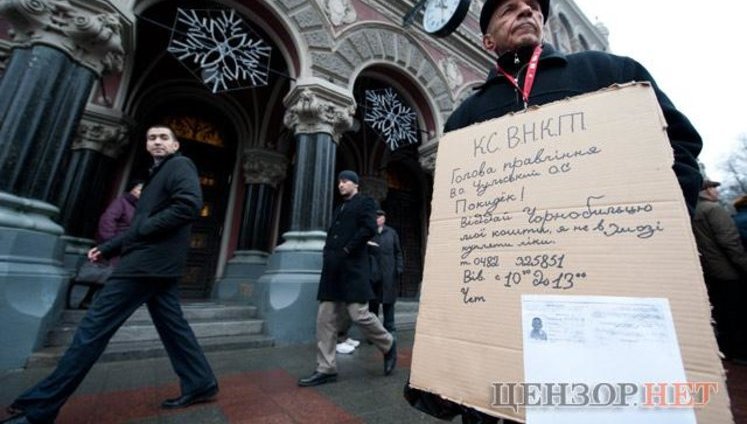 КС ВНКТ
Голова правління
Ва Чульський ОС
Покидёк!
Віддай Чорнобильцю
мої кошти, я не в змозі
купляти ліки.
т 0482 925851
Вів. с 10⁰⁰ до 13⁰⁰
Чет
ЦЕНЗОР.НЕТ